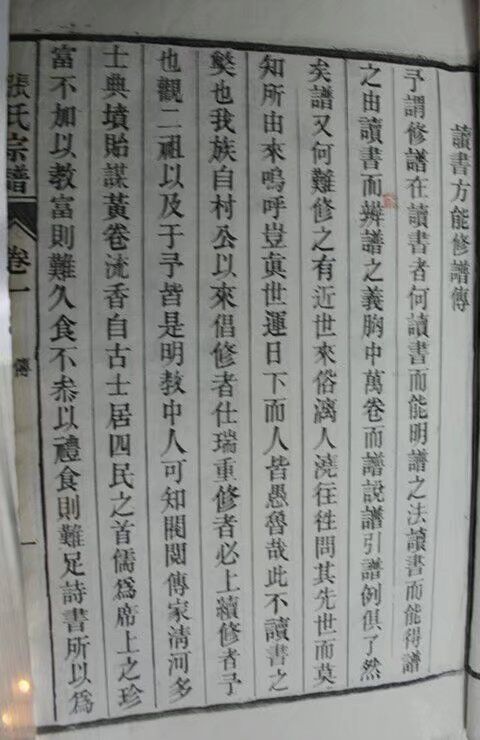 讀書方能修譜傳
予謂修譜在讀書者何讀書而能明譜之法讀書而能得譜
之由讀書而辨譜之義胸中萬卷而譜說譜引譜例俱了然
矣譜又何難修之有近世來俗漓人澆往徃問其先世而莫
知所由來嗚呼豈眞世運日下而人皆愚魯哉此不讀書之
獘也我族自村公以來倡修者仕瑞重修者必上續修者予
也觀二祖以及于予皆是明教中人可知閥閱傳家淸河多
士典墳貽謀黃卷流香自古士居四民之首儒爲席上之珍
富不加以教富則難久食不叅以禮食則難足詩書所以爲
張氏宗譜
卷一
傳
一